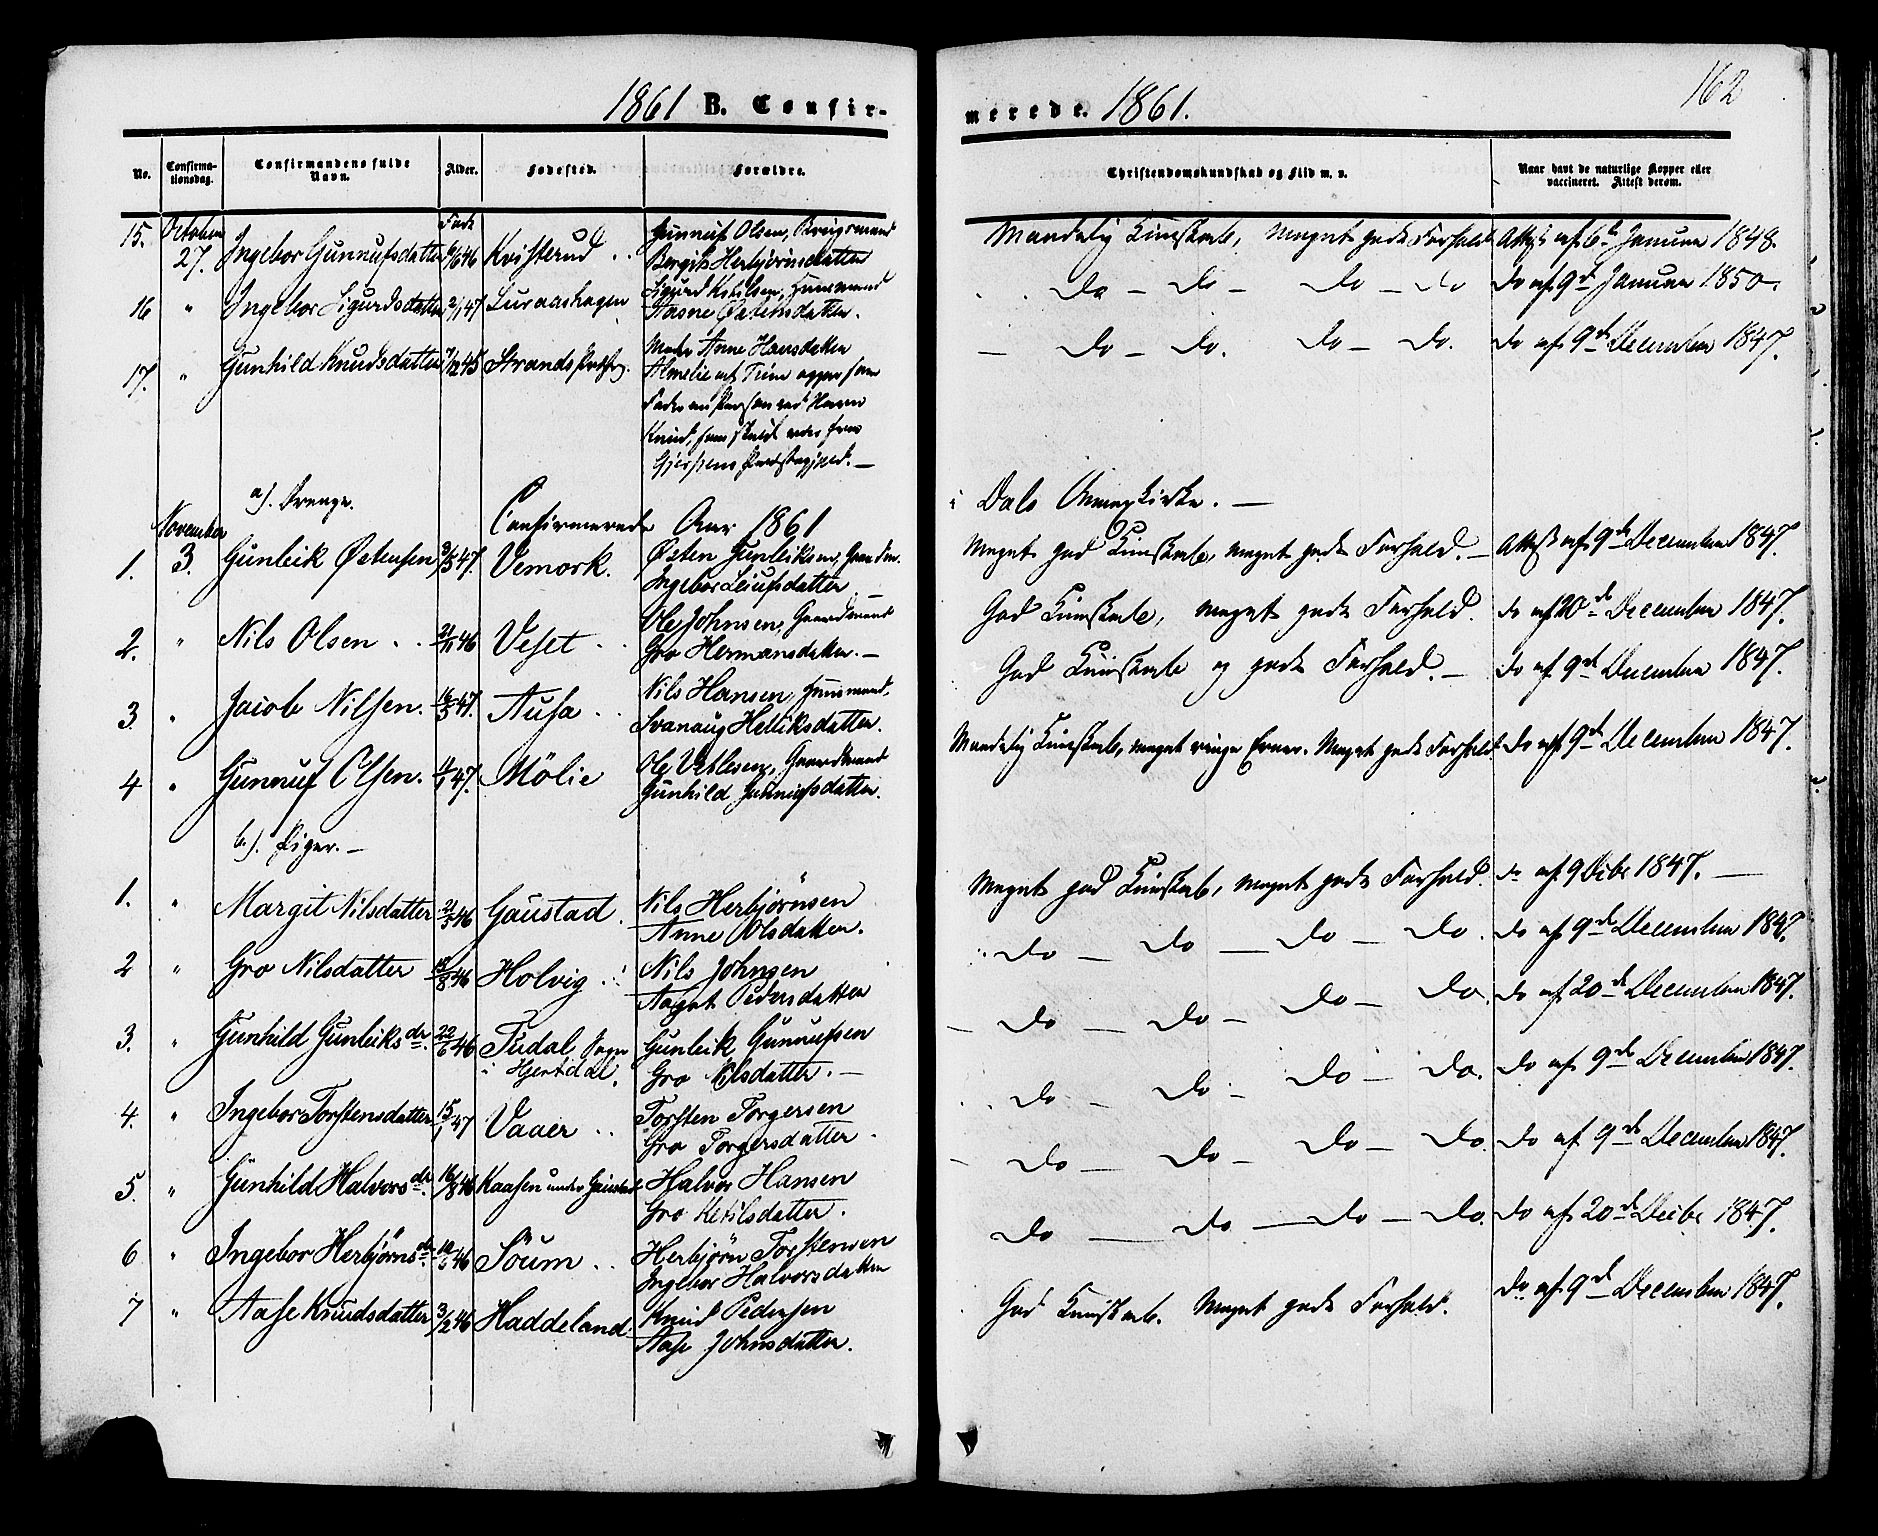 1861 B. Confir-
merede. 1861.
162
No.
Confirma-
tionsdag.
Confirmandens fulde
Navn.
Alder.
Fødested.
Forældre.
Christendomskundskab og Flid m. v.
Naar havt de naturlige Kopper eller
vaccineret. Attest derom.
15. October
27. Ingebor Gunnufsdatter Kvisterud
Gunnuf Olsen,
Bergit Herbjørnsdatter
Maadelig Kundskab, meget godt Forhold Attest af 6te Januar 1848.
16 " Ingebor Sigurdsdatter 2/1 47 Luraashagen
Sigurd Ketilsen, Huusmand
Aasne Østensdatter.
Do - Do - Do - Do Do af 9de Januar 1850.
17. " Gunhild Knudsdatter 7/12 45 Strands
Moder Anne Hansdatter
Do - Do. Do - Do. Do af 9de December 1847.
Knud, som
Gjerpens Præstegjeld. —
a). Drenge.
Confirmerede Aar 1861
i Dals Annexkirke. —
November
1. 3. Gunleik Østensen 47. Vemork.
Østen Gunleiksen,
Ingebor Leiufsdatter
Meget god Kundskab, meget godt Forhold. - Attest af 9de December 1847.
2. " Nils Olsen 21/11 46 Veset
Ole Johnsen, Gaardmand
Gro Hermansdatter. —
God Kundskab, meget godt Forhold. Do af 20de December 1847.
3. " Jacob Nilsen. 16/3 47. Ausa
Nils Hansen, Huusmand,
Svanaug Helliksdatter.
God Kundskab og godt Forhold. — Do af 9de December 1847.
4 " Gunnuf Olsen. 47. Mølie
Ole Vetlesen, Gaardmand
Gunhild Gunnufsdatter.
Maadelig Kundskab, meget ringe Evner. Meget godt Forhold. Do af 9de December 1847.
b). Piger. —
1. " Margit Nilsdatter 21/5 46 Gaustad.
Nils Herbjørnsen
Anne Olsdatter.
Meget god Kundskab, meget godt Forhold. Do af 9 Dcbr 1847. —
2 " Gro Nilsdatter 46 Holvig
Nils Johnsen
Aagot Pedersdatter
Do - Do - Do - Do. Do af 9de December 1847.
3. " Gunhild Gunleiksdr. 22/6 46 Tudal Sogn
i Hjertdal.
Gunleik Gunnufsen
Gro Nilsdatter. —
Do - Do - Do - Do. Do af 20de December 1847.
4. " Ingebor Torstensdatter 15/1 47 Vaaer
Torsten Torgersen
Gro Torgersdatter.
Do - Do - Do - Do. Do af 9de December 1847.
5. " Gunhild Halvorsdr. 16/8 46 Kaasen under Gaustad
Halvor Hansen
Gro Ketilsdatter.
Do - Do - Do - Do. Do af 9de December 1847.
6 " Ingebor Herbjørnsdr. 46 Söum
Herbjørn Torstensen
Ingebor Halvorsdatter
Do - Do - Do - Do. Do af 20de Decbr 1847.
7 " Aase Knudsdatter 3/2 46 Haddeland.
Knud Pedersen
Aase Johnsdatter.
God Kundskab. Meget godt Forhold. Do af 9de December 1847.